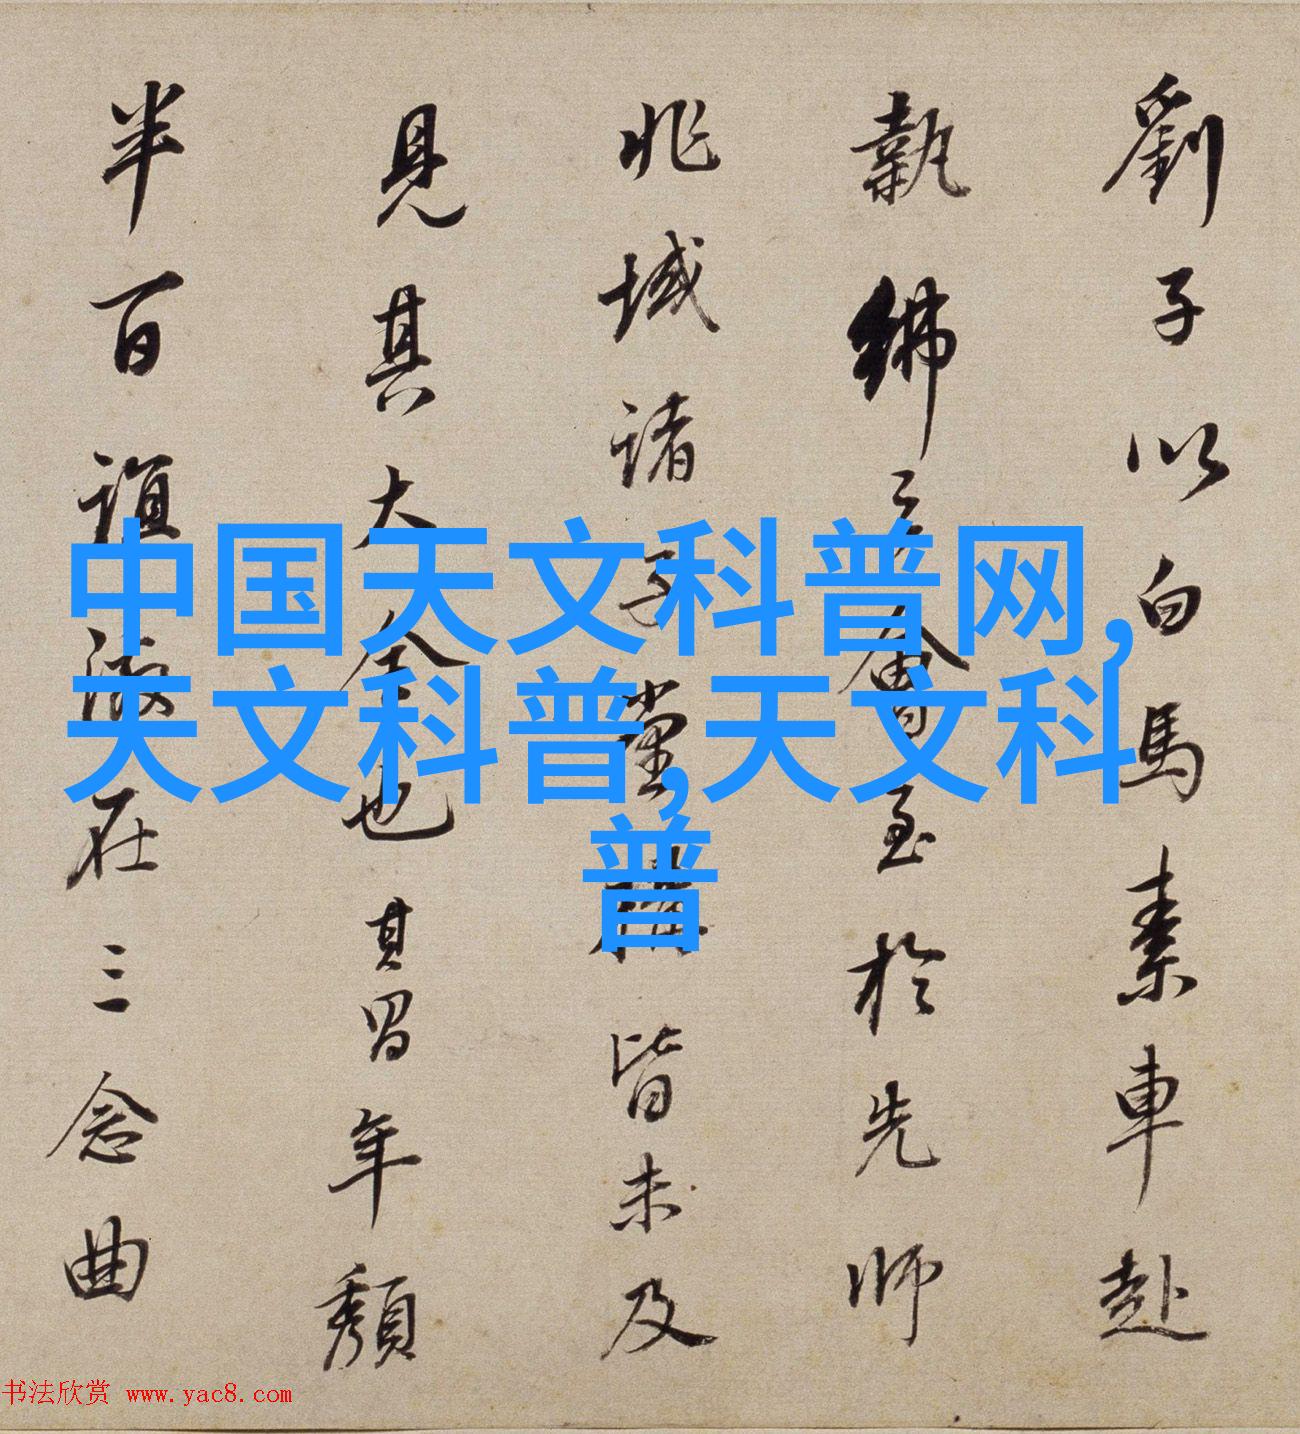 劉子以白馬素車赴
執紼之會至於先師
兆域诸子堂構皆未及
見其大全也其習年頽
半百誼激在三念曲
中国天文科普网,
天文科普,天文科
普
书法欣赏 www.yac8.com